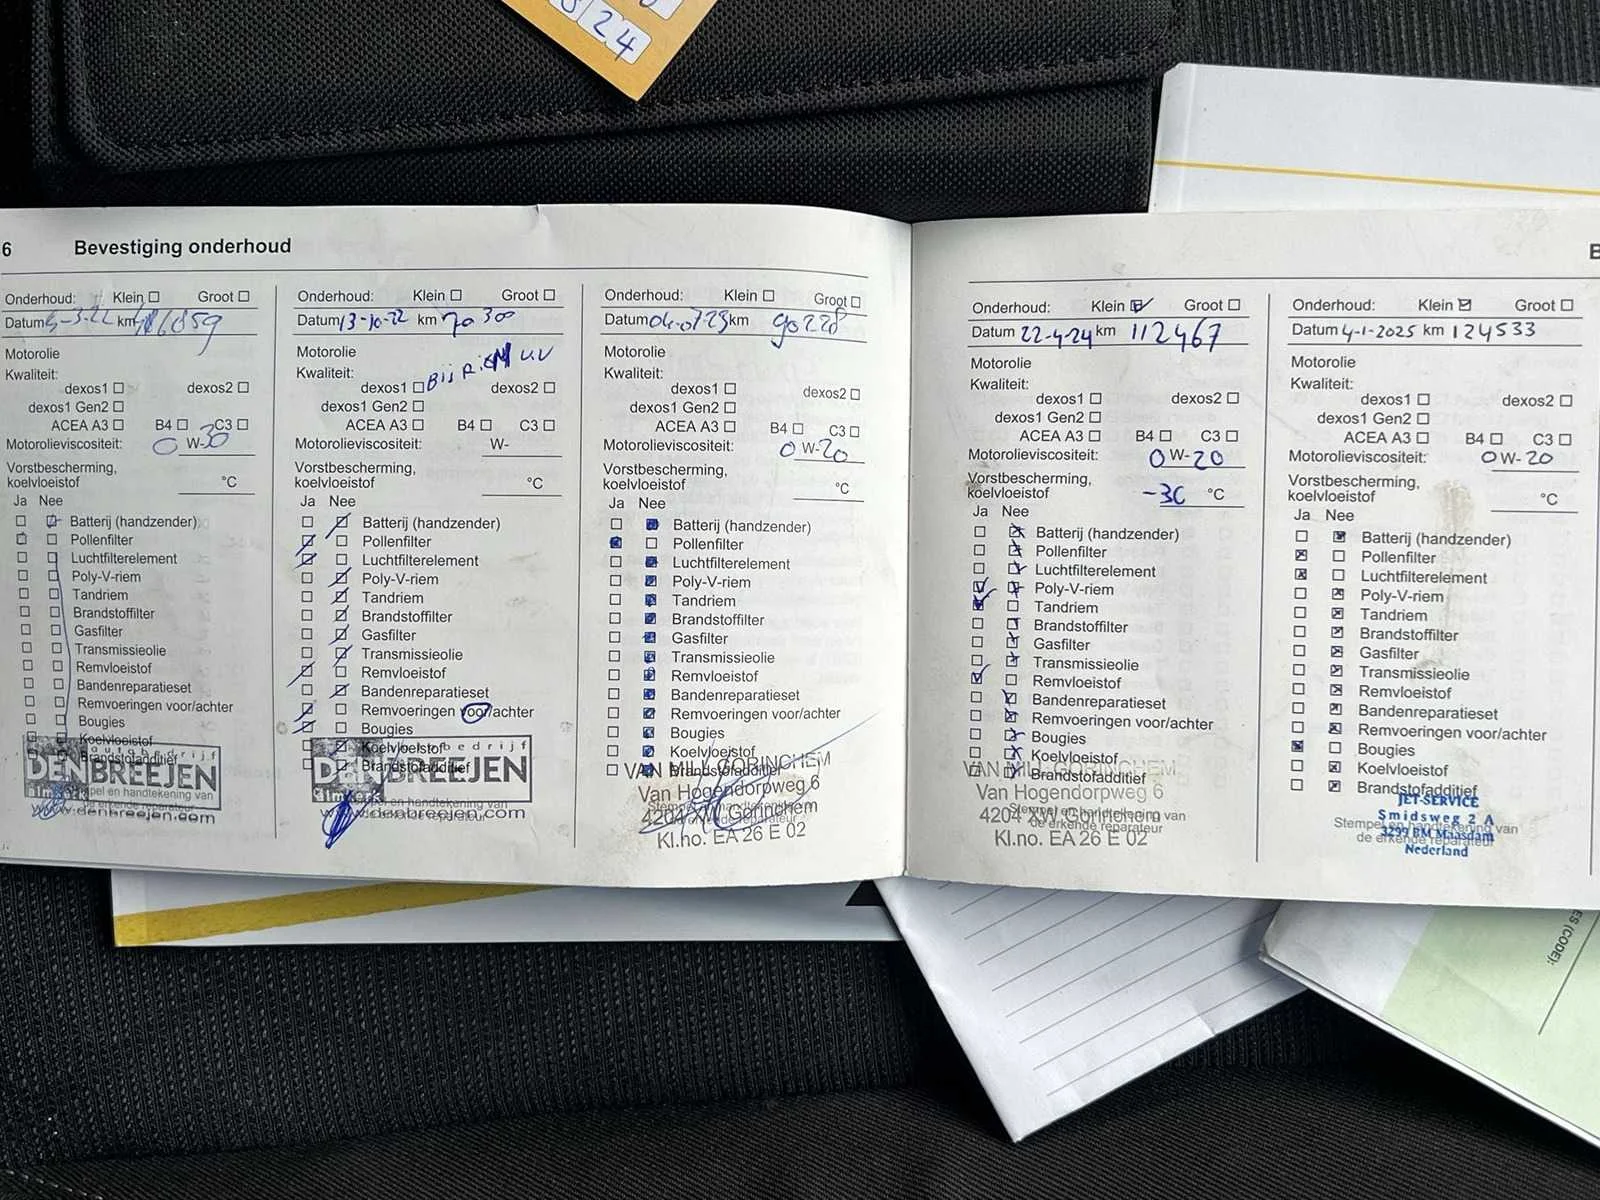 24
6 Bevestiging onderhoud
Onderhoud: Klein ☐ Groot ☐
Datum km
Motorolie
Kwaliteit:
dexos1 ☐ dexos2 ☐
dexos1 Gen2 ☐
ACEA A3 ☐ B4 ☐ C3 ☐
Motorolieviscositeit: 0 W-30
Vorstbescherming,
koelvloeistof °C
Ja Nee
Batterij (handzender)
Pollenfilter
Luchtfilterelement
Poly-V-riem
Tandriem
Brandstoffilter
Gasfilter
Transmissieolie
Remvloeistof
Bandenreparatieset
Remvoeringen voor/achter
Bougies
Koelvloeistof
Brandstofadditief
autobedrijf
DEN BREEJEN
almkerk
Stempel en handtekening van
de erkende reparateur
www.denbreejen.com
Onderhoud: Klein ☐ Groot ☐
Datum 13-10-22 km 70300
Motorolie
Kwaliteit: Bij RiEM
dexos1 ☐ dexos2 ☐
dexos1 Gen2 ☐
ACEA A3 ☐ B4 ☐ C3 ☐
Motorolieviscositeit: W-
Vorstbescherming,
koelvloeistof °C
Ja Nee
Batterij (handzender)
Pollenfilter
Luchtfilterelement
Poly-V-riem
Tandriem
Brandstoffilter
Gasfilter
Transmissieolie
Remvloeistof
Bandenreparatieset
Remvoeringen voor/achter
Bougies
Koelvloeistof
Brandstofadditief
autobedrijf
DEN BREEJEN
almkerk
Stempel en handtekening van
de erkende reparateur
www.denbreejen.com
Onderhoud: Klein ☐ Groot ☐
Datum 04-07-23 km 90228
Motorolie
Kwaliteit:
dexos1 ☐ dexos2 ☐
dexos1 Gen2 ☐
ACEA A3 ☐ B4 ☐ C3 ☐
Motorolieviscositeit: 0 W-20
Vorstbescherming,
koelvloeistof °C
Ja Nee
Batterij (handzender)
Pollenfilter
Luchtfilterelement
Poly-V-riem
Tandriem
Brandstoffilter
Gasfilter
Transmissieolie
Remvloeistof
Bandenreparatieset
Remvoeringen voor/achter
Bougies
Koelvloeistof
Brandstofadditief
VAN MILL GORINCHEM
Van Hogendorpweg 6
4204 XW Gorinchem
Kl.no. EA 26 E 02
B
Onderhoud: Klein ☑ Groot ☐
Datum 22-4-24 km 112467
Motorolie
Kwaliteit:
dexos1 ☐ dexos2 ☐
dexos1 Gen2 ☐
ACEA A3 ☐ B4 ☐ C3 ☐
Motorolieviscositeit: 0 W-20
Vorstbescherming,
koelvloeistof °C
Ja Nee
Batterij (handzender)
Pollenfilter
Luchtfilterelement
Poly-V-riem
Tandriem
Brandstoffilter
Gasfilter
Transmissieolie
Remvloeistof
Bandenreparatieset
Remvoeringen voor/achter
Bougies
Koelvloeistof
Brandstofadditief
VAN MILL GORINCHEM
Van Hogendorpweg 6
Stempel en handtekening van
4204 XW Gorinchem
de erkende reparateur
Kl.no. EA 26 E 02
Onderhoud: Klein ☑ Groot ☐
Datum 4-1-2025 km 124533
Motorolie
Kwaliteit:
dexos1 ☐ dexos2 ☐
dexos1 Gen2 ☐
ACEA A3 ☐ B4 ☐ C3 ☐
Motorolieviscositeit: 0 W-20
Vorstbescherming,
koelvloeistof °C
Ja Nee
Batterij (handzender)
Pollenfilter
Luchtfilterelement
Poly-V-riem
Tandriem
Brandstoffilter
Gasfilter
Transmissieolie
Remvloeistof
Bandenreparatieset
Remvoeringen voor/achter
Bougies
Koelvloeistof
Brandstofadditief
JET-SERVICE
Smidsweg 2 A
Stempel en handtekening van
3299 BM Maasdam
de erkende reparateur
Nederland
ES (CODE):